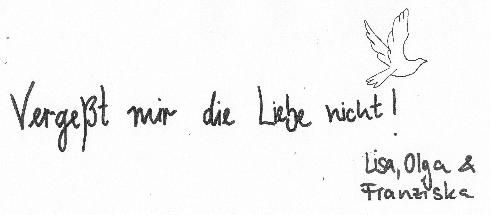 Vergeßt mir die Liebe nicht!
Lisa, Olga &
Franziska